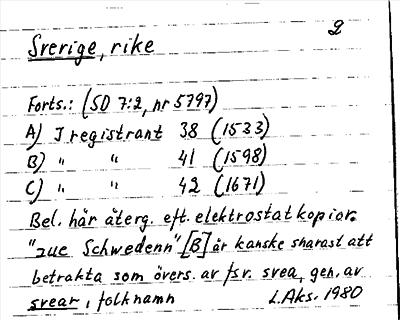 2
Sverige, rike
Forts.: (SD 7:2, nr 5797)
A) I registrant 38 (1533)
B) " " 41 (1598)
C) " " 42 (1671)
Bel. här återg. eft. elektrostatkopior.
"zue Schwedenn" [B] är kanske snarast att
betrakta som övers. av fsv. svea, gen. av
svear, folknamn L.Aks. 1980